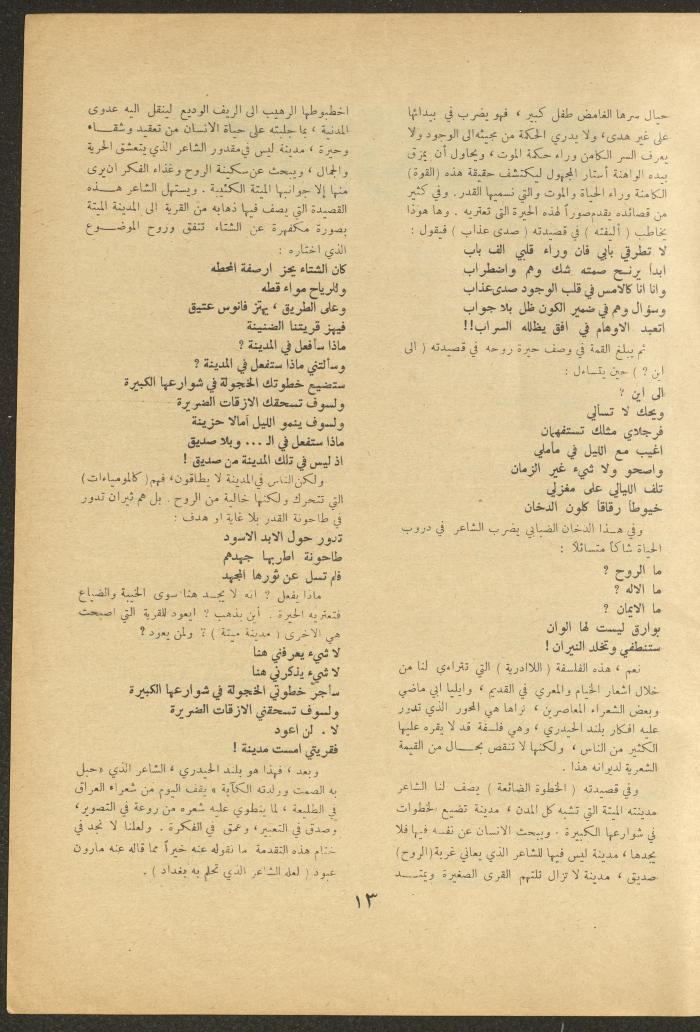 حيال سرها الغامض طفل كبير ، فهو يضرب في بيدائها
على غير هدى، ولا يدري الحكمة من مجيئه الى الوجود ولا
يعرف السر الكامن وراء حكمة الموت، ويحاول أن يمزق
بيده الواهنة أستار المجهول ليكتشف حقيقة هذه (القوة)
الكامنة وراء الحياة والموت والتي نسميها القدر. وفي كثير
من قصائده يقدم صوراً لهذه الحيرة التي تعتريه . وها هوذا
يخاطب ( أليفته ) في قصيدته ( صدى عذاب ) فيقول :
لا تطرقي بابي فان وراء قلبي الف باب
ابداً يرنح صمته شك وهم واضطراب
وانا انا كالامس في قلب الوجود صدى عذاب
وسؤال وهم في ضمير الكون ظل بلا جواب
اتعبد الاوهام في افق يظلله السراب!!
ثم يبلغ القمة في وصف حيرة روحه في قصيدته ( الى
اين ? ) حين يتساءل :
الى اين ?
ويحك لا تسألي
فرجلاي مثلك تستفهمان
اغيب مع الليل في مأملي
واصحو ولا شيء غير الزمان
تلف الليالي على مغزلي
خيوطاً رقاقاً كلون الدخان
وفي هــذا الدخان الضبابي يضرب الشاعر في دروب
الحياة شاكاً متسائلاً :
ما الروح ?
ما الاله ?
ما الايمان ?
بوارق ليست لها الوان
ستنطفي وتخلد النيران !
نعم ، هذه الفلسفة ( اللاادرية ) التي تتراءى لنا من
خلال اشعار الخيام والمعري في القديم ، وايليا ابي ماضي
وبعض الشعراء المعاصرين ، نراها هي المحور الذي تدور
عليه افكار بلند الحيدري ، وهي فلسفة قد لا يقره عليها
الكثير من الناس ، ولكنها لا تنقص بحـــال من القيمة
الشعرية لديوانه هذا .
وفي قصيدته ( الخطوة الضائعة ) يصف لنا الشاعر
مدينته الميتة التي تشبه كل المدن ، مدينة تضيع الخطوات
في شوارعها الكبيرة . ويبحث الانسان عن نفسه فيها فلا
يجدها ، مدينة ليس فيها للشاعر الذي يعاني غربة (الروح)
صديق ، مدينة لا تزال تلتهم القرى الصغيرة ويمتــد
اخطبوطها الرهيب الى الريف الوديع لينقل اليه عدوى
المدنية ، بما جلبته على حياة الانسان من تعقيد وشقــاء
وحيرة ، مدينة ليس في مقدور الشاعر الذي يتعشق الحرية
والجمال ، ويبحث عن سكينة الروح وغذاء الفكر ان يرى
منها إلا جوانبها الميتة الكئيبة . ويستهل الشاعر هــذه
القصيدة التي يصف فيها ذهابه من القرية الى المدينة الميتة
بصورة مكفهرة عن الشتاء تتفق وروح الموضــوع
الذي اختاره :
كان الشتاء يحز ارصفة المحطه
وللرياح مواء قطه
وعلى الطريق ، يهتز فانوس عتيق
فيهز قريتنا الضنينة
ماذا سأفعل في المدينة ?
وسألتني ماذا ستفعل في المدينة ?
ستضيع خطوتك الخجولة في شوارعها الكبيرة
ولسوف تسحقك الازقات الضريرة
ولسوف ينمو الليل آمالا حزينة
ماذا ستفعل في الـ ... وبلا صديق
اذ ليس في تلك المدينة من صديق !
ولكن الناس في المدينة لا يطاقون، فهم (كالمومياءات)
التي تتحرك ولكنها خالية من الروح . بل هم ثيران تدور
في طاحونة القدر بلا غاية او هدف :
تدور حول الابد الاسود
طاحونة اطربها جهدهم
فلم تسل عن ثورها المجهد
ماذا يفعل ? انه لا يجــد هنا سوى الخيبة والضياع
فتعتريه الحيرة . أين يذهب ? ايعود للقرية التي اصبحت
هي الاخرى ( مدينة ميتة ) ? ولمن يعود ?
لا شيء يعرفني هنا
لا شيء يذكرني هنا
سأجر خطوتي الخجولة في شوارعها الكبيرة
ولسوف تسحقني الازقات الضريرة
لا . لن اعود
فقريتي امست مدينة !
وبعد ، فهذا هو بلند الحيدري ، الشاعر الذي «حبل
به الصمت وولدته الكآبة » يقف اليوم من شعراء العراق
في الطليعة ، لما ينطوي عليه شعره من روعة في التصوير،
وصدق في التعبير، وعمق في الفكرة . ولعلنا لا نجد في
ختام هذه التقدمة ما نقوله عنه خيراً مما قاله عنه مارون
عبود ( لعله الشاعر الذي تحلم به بغداد ) .
١٣